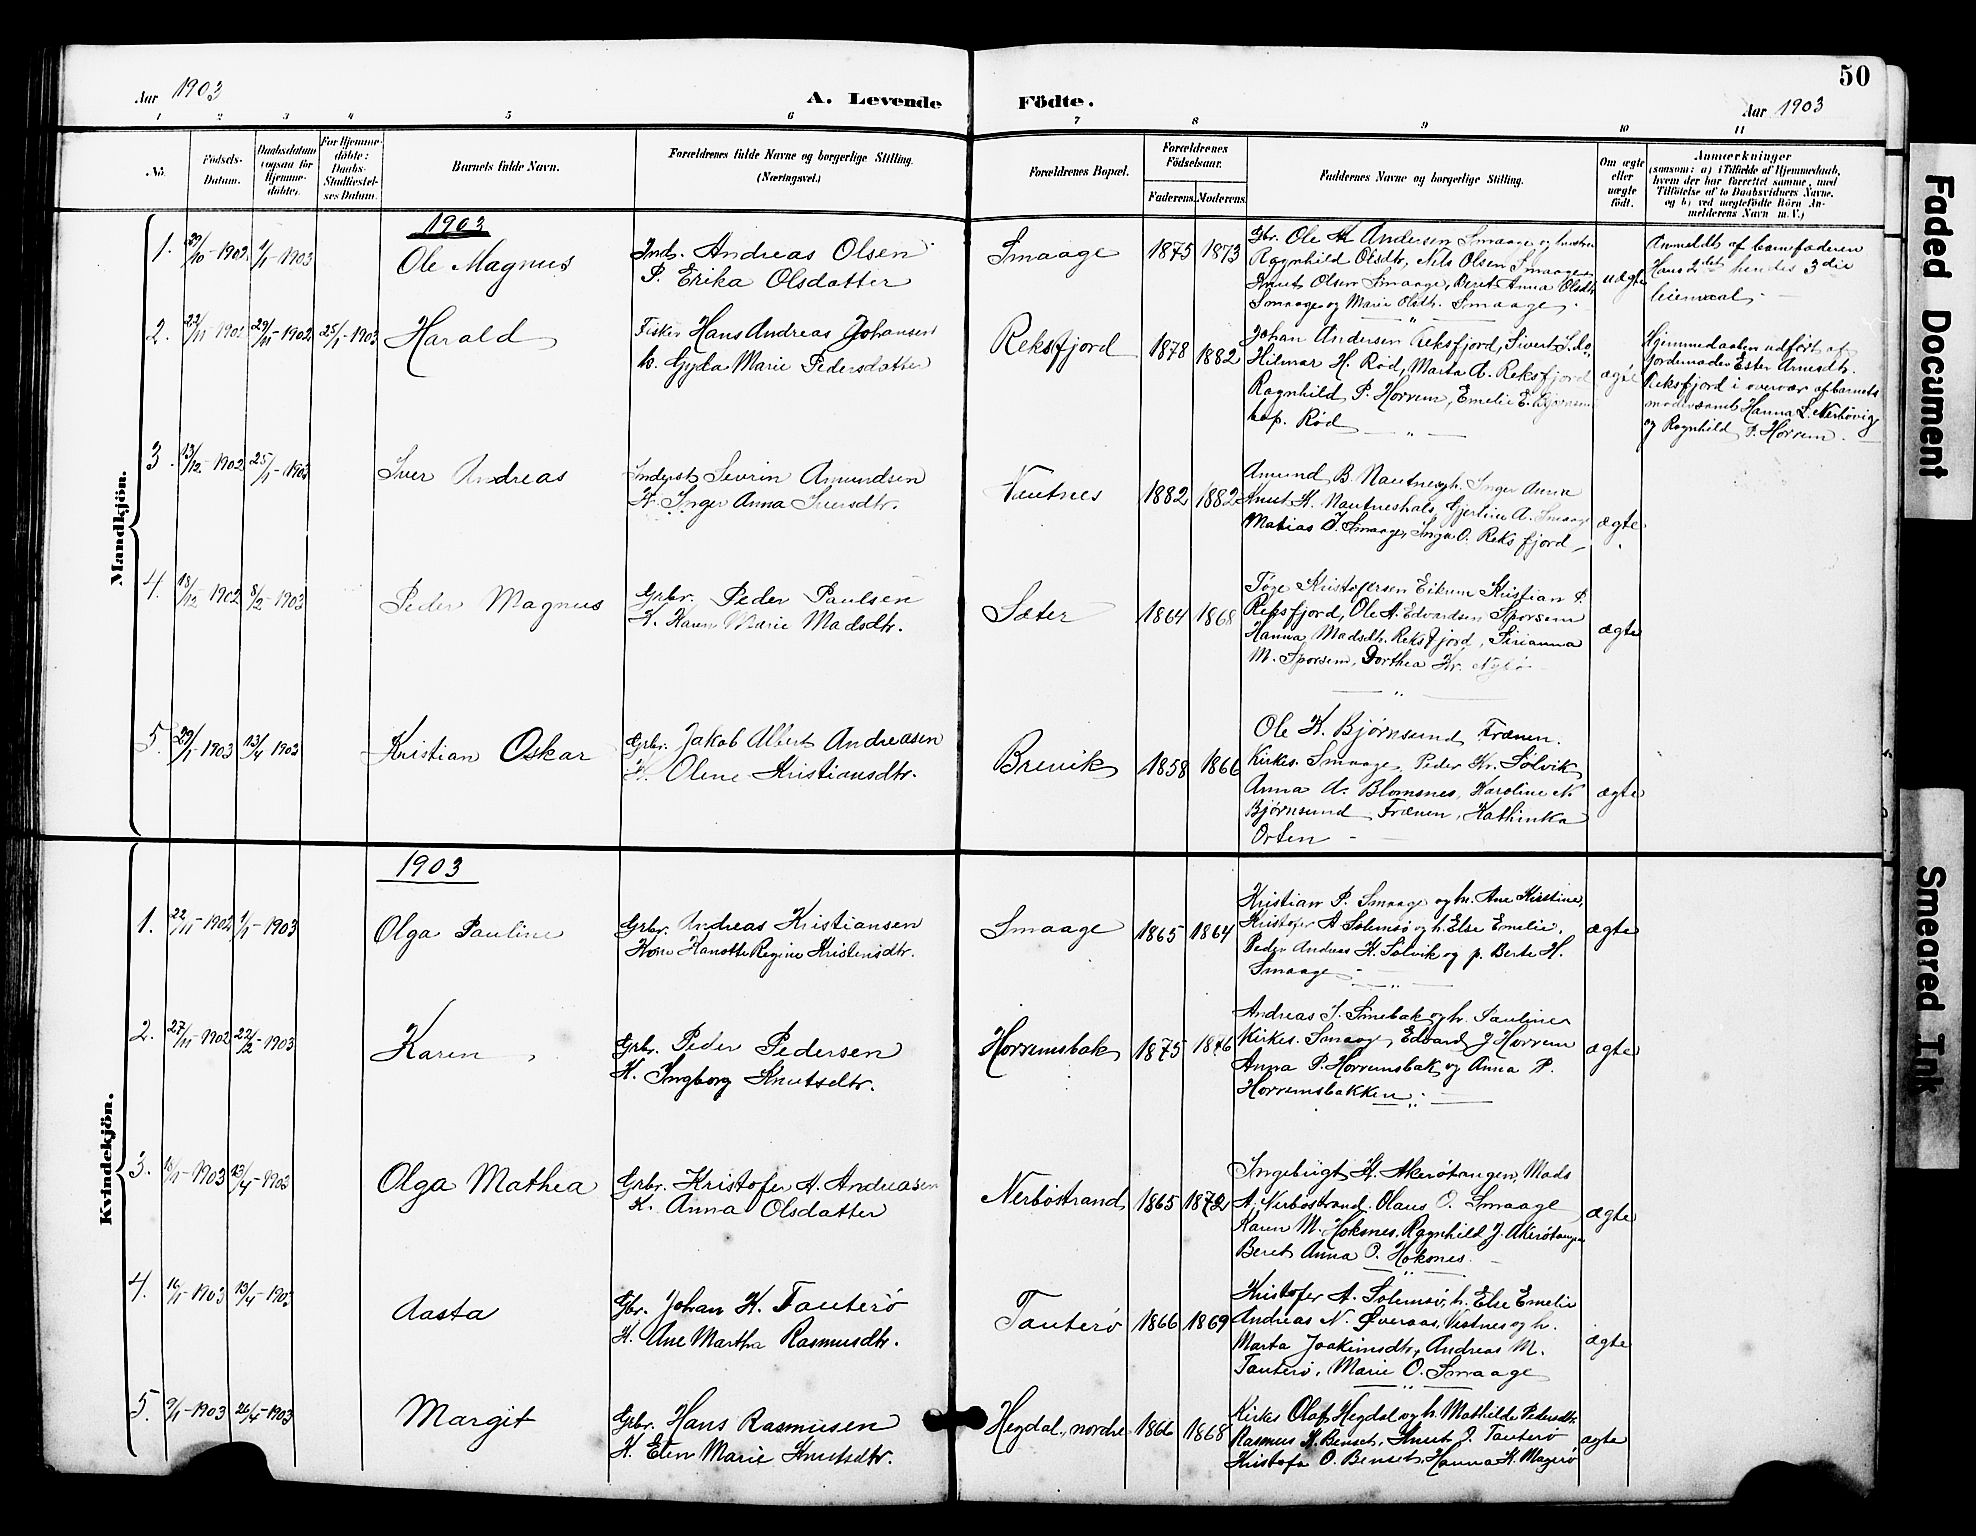 50
Aar 1903
A. Levende Födte.
Aar 1903
1 2 3 4 5 6 7 8 9 10 11
No.
Födsels-Datum.
Daabsdatum (ogsaa for Hjemme-döbte).
For Hjemme-döbte: Daabs-Stadfæstel-ses Datum.
Barnets fulde Navn.
Forældrenes fulde Navne og borgerlige Stilling.
(Næringsvei.)
Forældrenes Bopæl.
Forældrenes Födselsaar.
Faderens. Moderens.
Faddernes Navne og borgerlige Stilling.
Om ægte eller uægte födt.
Anmærkninger
(saasom: a) i Tilfælde af Hjemmedaab, hvem der har forrettet samme, med Tilföielse af to Daabsvidners Navne, og b) ved uægtefödte Börn An-melderens Navn m. V.)
Mandkjön.
1903
1. 29/10-1902 1/1-1903
Ole Magnus
Ind. Andreas Olsen
P. Erika Olsdatter
Smaage 1875 1873
Gbr. Ole M Andersen Smaage og hustru
Ragnhild Olsdtr, Nils Olsen Smaage
Knut Olsen Smaage, Beret Anna Olsdtr
Smaage og Marie Olsdtr. Smaage
uægte
Anmeldt af barnefaderen
Hans 2det hendes 3die
leiermaal
2. 23/11-1902 29/11-1902 25/1-1903
Harald
Fisker Hans Andreas Johansen
h. Gyda Marie Pedersdatter
Reksfjord 1878 1882
Johan Andersen Reksfjord, Sivert
Hilmar H. Rød, Marta A. Reksfjord
Ragnhild P. Horrem, Emelie E.
Rød
ægte
Hjemmedaaben udført af
jordemoder Ester Arnesdtr.
Reksfjord i overvær af barnets
moder samt Hanna L. Nerhövig
og Ragnhild P. Horrem.
3. 13/12-1902 25/1-1903
Iver Andreas
Inderst Sevrin Amundsen
H. Inger Anna Iversdtr.
1882 1882
Amund B. Nautnes og h. Inger Anna
Knut K. Nautneshals, Gjertine A. Smaage
Matias J. Smaage, Inga O. Reksfjord
ægte
4. 18/12 1902 8/2-1903
Peder Magnus
Grbr. Peder Paulsen
H. Karen Marie Madsdtr.
Sæter 1864 1868
Töge Kristofersen Eikrem Kristian P.
Reksfjord, Ole A. Edvardsen Sporsem
Hanna Madsdtr. Reksfjord, Sirianna
M. Sporsem, Dorthea Kr.
ægte
5. 29/1-1903 13/4 1903
Kristian Oskar
Grbr. Jakob Albert Andreasen
H. Oline Kristiansdtr.
Brevik 1858 1866
Ole K. Bjørnsund Frænen.
Kirkes. Smaage, Peder Kr. Solvik
Anna A. Blomsnes, Karoline N
Bjørnsund Frænen, Kathinka
Orten
ægte
Kvindekjön.
1903
1. 22/11-1902 1/1-1903
Olga Pauline
Grbr. Andreas Kristiansen
Kone Hanotte Regine Kristensdtr.
Smaage 1865 1864
Kristian P. Smaage og hu. Ane Kirstine,
Kristofer A Solemsø og h. Else Emelie.
Peder Andreas K. Solvik og p. Berte H.
Smaage
ægte
2. 27/11-1902 22/2-1903
Karen
Grbr. Peder Pedersen
H. Ingborg Knutsdtr.
Horremsbak 1875 1876
Andreas J. Smebak og h. Pauline
Kirkes. Smaage, Edvard J Horrem
Anna P. Horremsbak og Anna P.
Horremsbakken
ægte
3. 1903 13/4-1903
Olga Mathea
Grbr. Kristofer A. Andreasen
K. Anna Olsdatter
Nerbøstrand 1865 1872
Ingebrigt H. Akerøtangen, Mads
A. Nerbøstrand. Olaus O. Smaage
Karen M. Hoksnes. Ragnhild J. Akerøtangen
Beret Anna O. Hoksnes.
ægte
4. 16/1 1903 13/4-1903
Aasta
Gbr. Johan K. Tauterø
H. Ane Martha Rasmusdtr.
Tauterø 1866 1869
Kristofer A. Solemsø, h. Else Emelie
Andreas N. Øveraas, Vestnes og h.
Marta Joakimsdtr, Andreas M.
Tauterø, Marie O. Smaage
ægte
5. 9/1-1903 26/4-1903
Margit
Grbr. Hans Rasmusen
H. Elen Marie Knutsdtr.
Hegdal, nordre 1866 1868
Kirkes Olaf Hegdal og h. Mathilde Pedersdtr
Rasmus K. Benset, Knut J. Tauterø
Kristofer O. Benset, Hanna K. Magerø
ægte
Faded Document
Smeared Ink